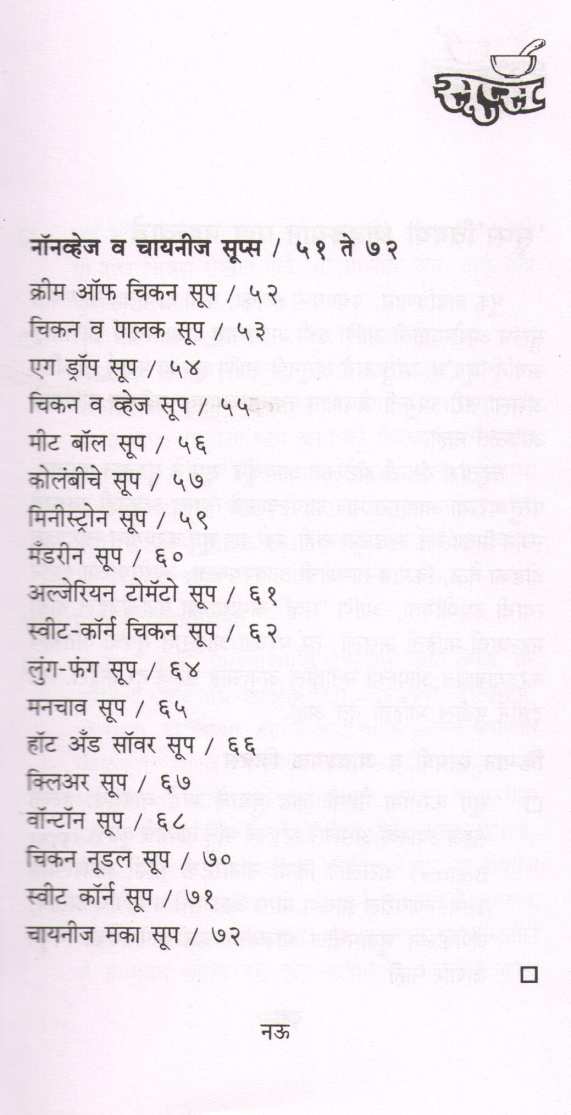 सूप्स
नॉनव्हेज व चायनीज सूप्स / ५१ ते ७२
क्रीम ऑफ चिकन सूप / ५२
चिकन व पालक सूप / ५३
एग ड्रॉप सूप / ५४
चिकन व व्हेज सूप / ५५
मीट बॉल सूप / ५६
कोलंबीचे सूप / ५७
मिनीस्ट्रोन सूप / ५९
मँडरीन सूप / ६०
अल्जेरियन टोमॅटो सूप / ६१
स्वीट कॉर्न चिकन सूप / ६२
लुंग-फंग सूप / ६४
मनचाव सूप / ६५
हॉट अँड सॉवर सूप / ६६
क्लिअर सूप / ६७
वॉन्टॉन सूप / ६८
चिकन नूडल सूप / ७०
स्वीट कॉर्न सूप / ७१
चायनीज मका सूप / ७२
नऊ